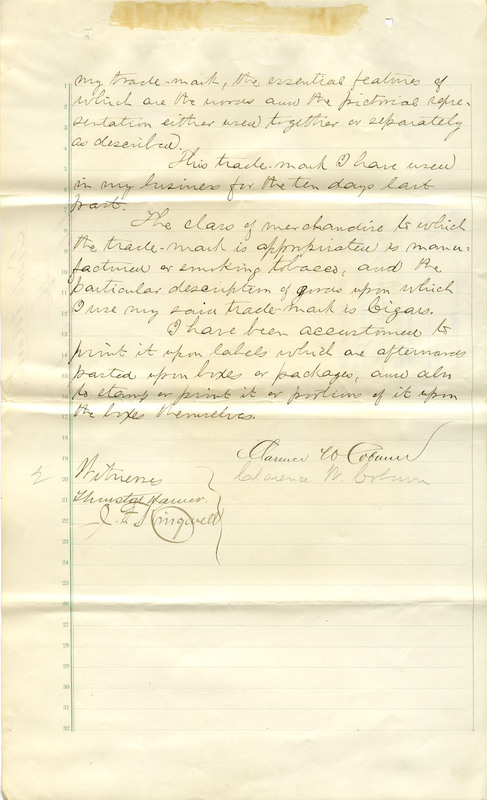 my trade-mark, the essential features of
which are the words and the pictorial repre-
sentation either used together or separately
as described.
This trade-mark I have used
in my business for the ten days last
past.
The class of merchandise to which
the trade-mark is appropriated is manu-
factured or smoking tobacco, and the
particular description of goods upon which
I use my said trade-mark is Cigars.
I have been accustomed to
print it upon labels which are afterwards
pasted upon boxes or packages, and also
to stamp or print it or portions of it upon
the boxes themselves.
Clarence W Coburn
Clarence W. Coburn
Witnesses
1
2
3
4
5
6
7
8
9
10
11
12
13
14
15
16
17
18
19
20
21
22
23
24
25
26
27
28
29
30
31
32